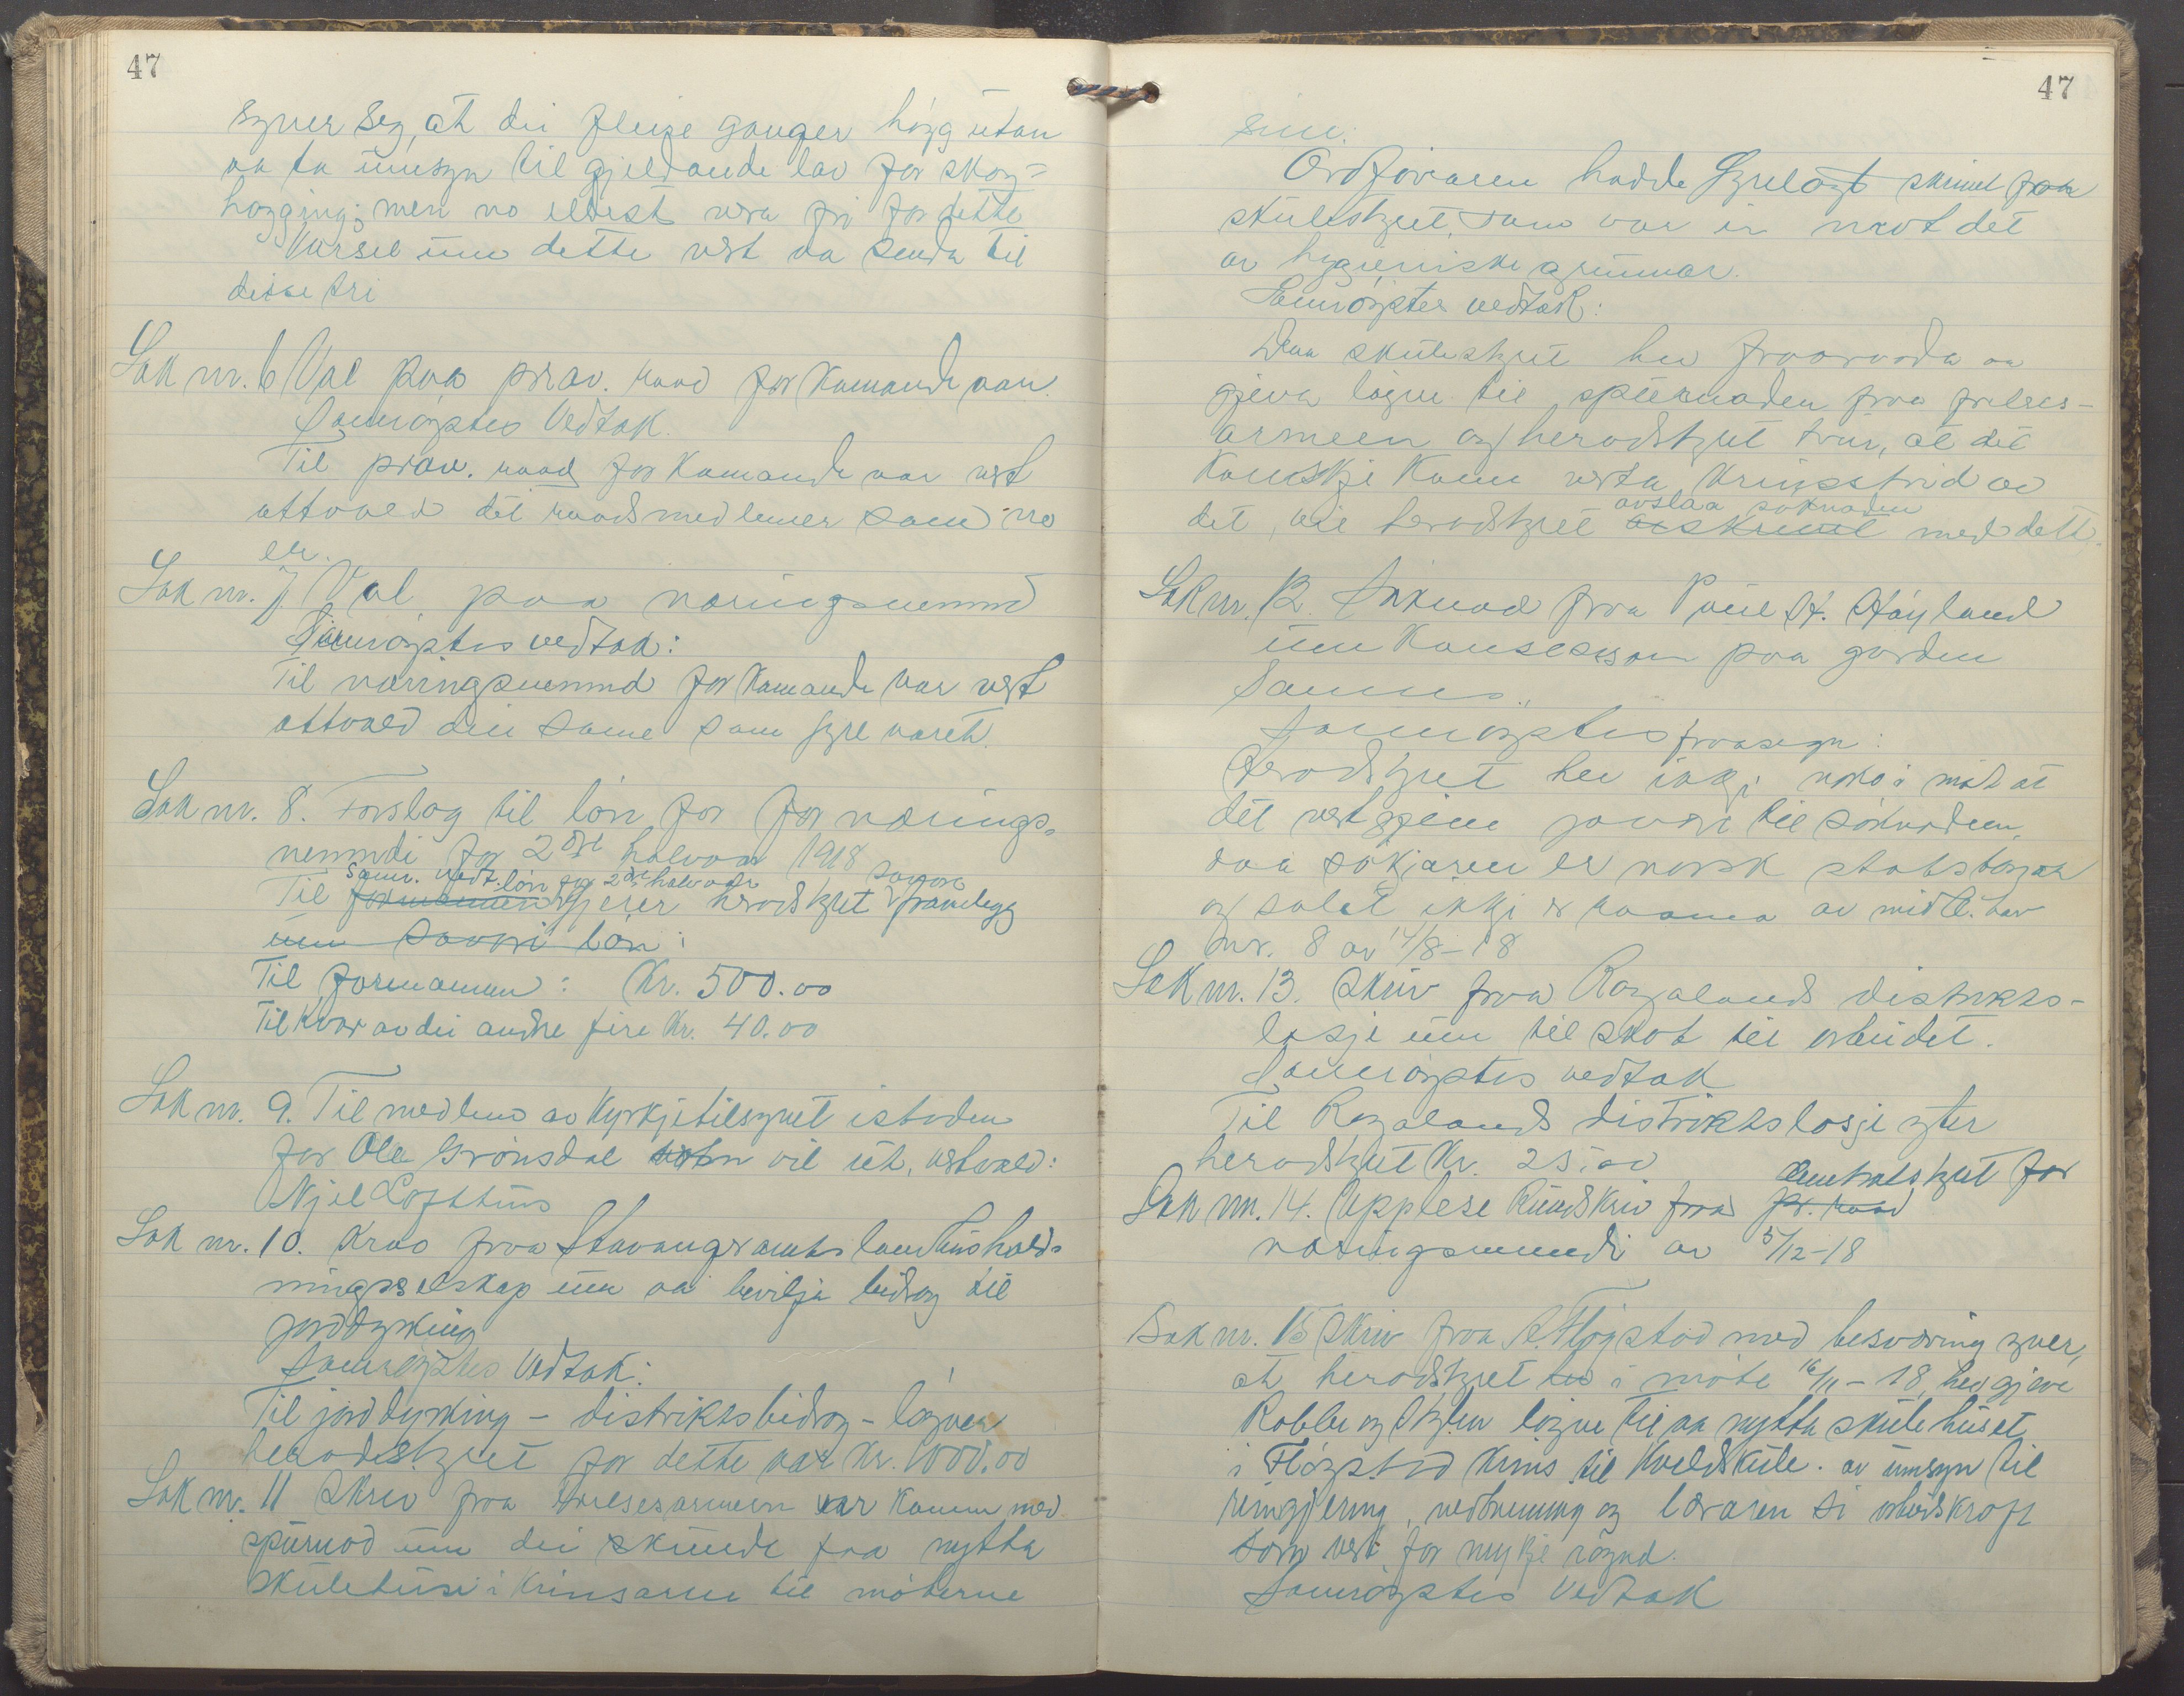 47
syner seg, at dei fleire ganger høgg utan
aa ta umsyn til gjeldande lov for skog-
hogging; men no vert fri for dette
Varsel um dette vert aa senda til
disse tri
Sak nr. 6 Val paa prov. raad for Komande aar.
Samrøystes Vedtak.
Til prov. raad for Komande aar vert
attvald dei raadsmedlemer som no
er.
Sak nr. 7. Val paa næringsnemnd
Samrøystes vedtak:
Til næringsnemnd for Komande aar vert
attvald dei same som fyre vareti.
Sak nr. 8. Forslag til løn for for nærings-
nemndi for 2dre halvaar 1918
Samr. vedt. løn for 2dre halvaar
Til formannen gjerer heradstyret framlegg
um løn:
Til formannen: Kr. 500.00
Til kvar av dei andre fire Kr. 40.00
Sak nr. 9. Til medlem av Kyrkjetilsynet istaden
for Ola Grønsdal vil ut, vert vald:
Njel Lofthus
Sak nr. 10. Krav fraa Stavanger amts landhushald-
ningsselskap um aa bevilja bidrag til
jorddyrking
Samrøystes Vedtak:
Til jorddyrking - distriktsbidrag - løyver
heradstyret for dette aar Kr. 1000.00
Sak nr. 11 Skriv fraa Frelsesarmeen var komen med
spurnad um dei skunde faa nytta
skulehusi i krinsarne til møterne
47
sine.
Ordføraren hadde fyrelagt skrivet fraa
skulestyret, som var i mot det
av hygieniske grunnar.
Samrøystes vedtak:
Daa skulestyret hev fraaraada aa
gjeva løyve til spurnaden fraa frelses-
armeen og heradstyret trur, at det
Kanskje Kann verta Krinsstrid av
avslaa søknaden
det, vil heradstyret med dette.
Sak nr. 12. Søknad fraa Paul H. Høyland
um Konsesjon paa garden
Samrøystes fraasegn:
Heradstyret hev ikkje noko i mot at
det vert gjeve til søknaden,
daa søkjaren er norsk statsborgar
og salet ikkje er raama av midl. lov
nr. 8 av 14/8-18
Sak nr. 13. Skriv fraa Rogalands distrikts-
losje um tilskot til arbeidet.
Samrøystes vedtak
Til Rogalands distriktslosje yter
heradstyret Kr. 25.00
Sak nr. 14. Upplese Rundskriv fraa pr. raad
amtratstyret for
næringsnemndi av 5/12-18
Sak nr. 15 Skriv fraa A. Fløystad med besværing yver,
at heradstyret i møte 16/11-18, hev gjeve
løyve til aa nytta skulehuset
i Fløystad Krins til Kveldskule. av umsyn til
reingjering, vedbrenning og læraren si arbeidskraft
som vert for mykje røynd.
Samrøystes Vedtak